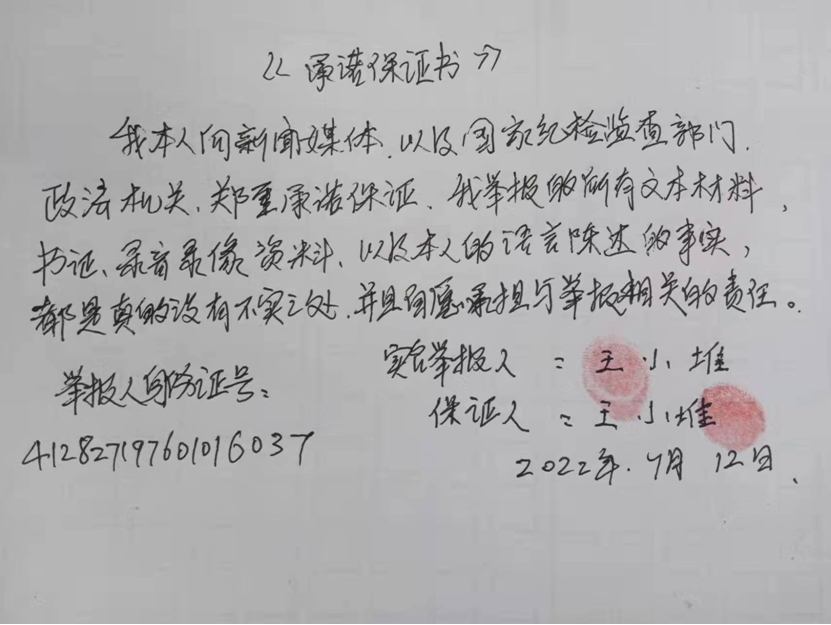 《承诺保证书》
我本人向新闻媒体、以及国家纪检监查部门、
政法机关、郑重承诺保证、我举报的所有文本材料,
书证、录音录像资料、以及本人的语言陈述的事实,
都是真的没有不实之处、并且自愿承担与举报相关的责任。
实名举报人:王小堆
举报人身份证号:
保证人:王小堆
412827197601016037
2022年.7月12日、